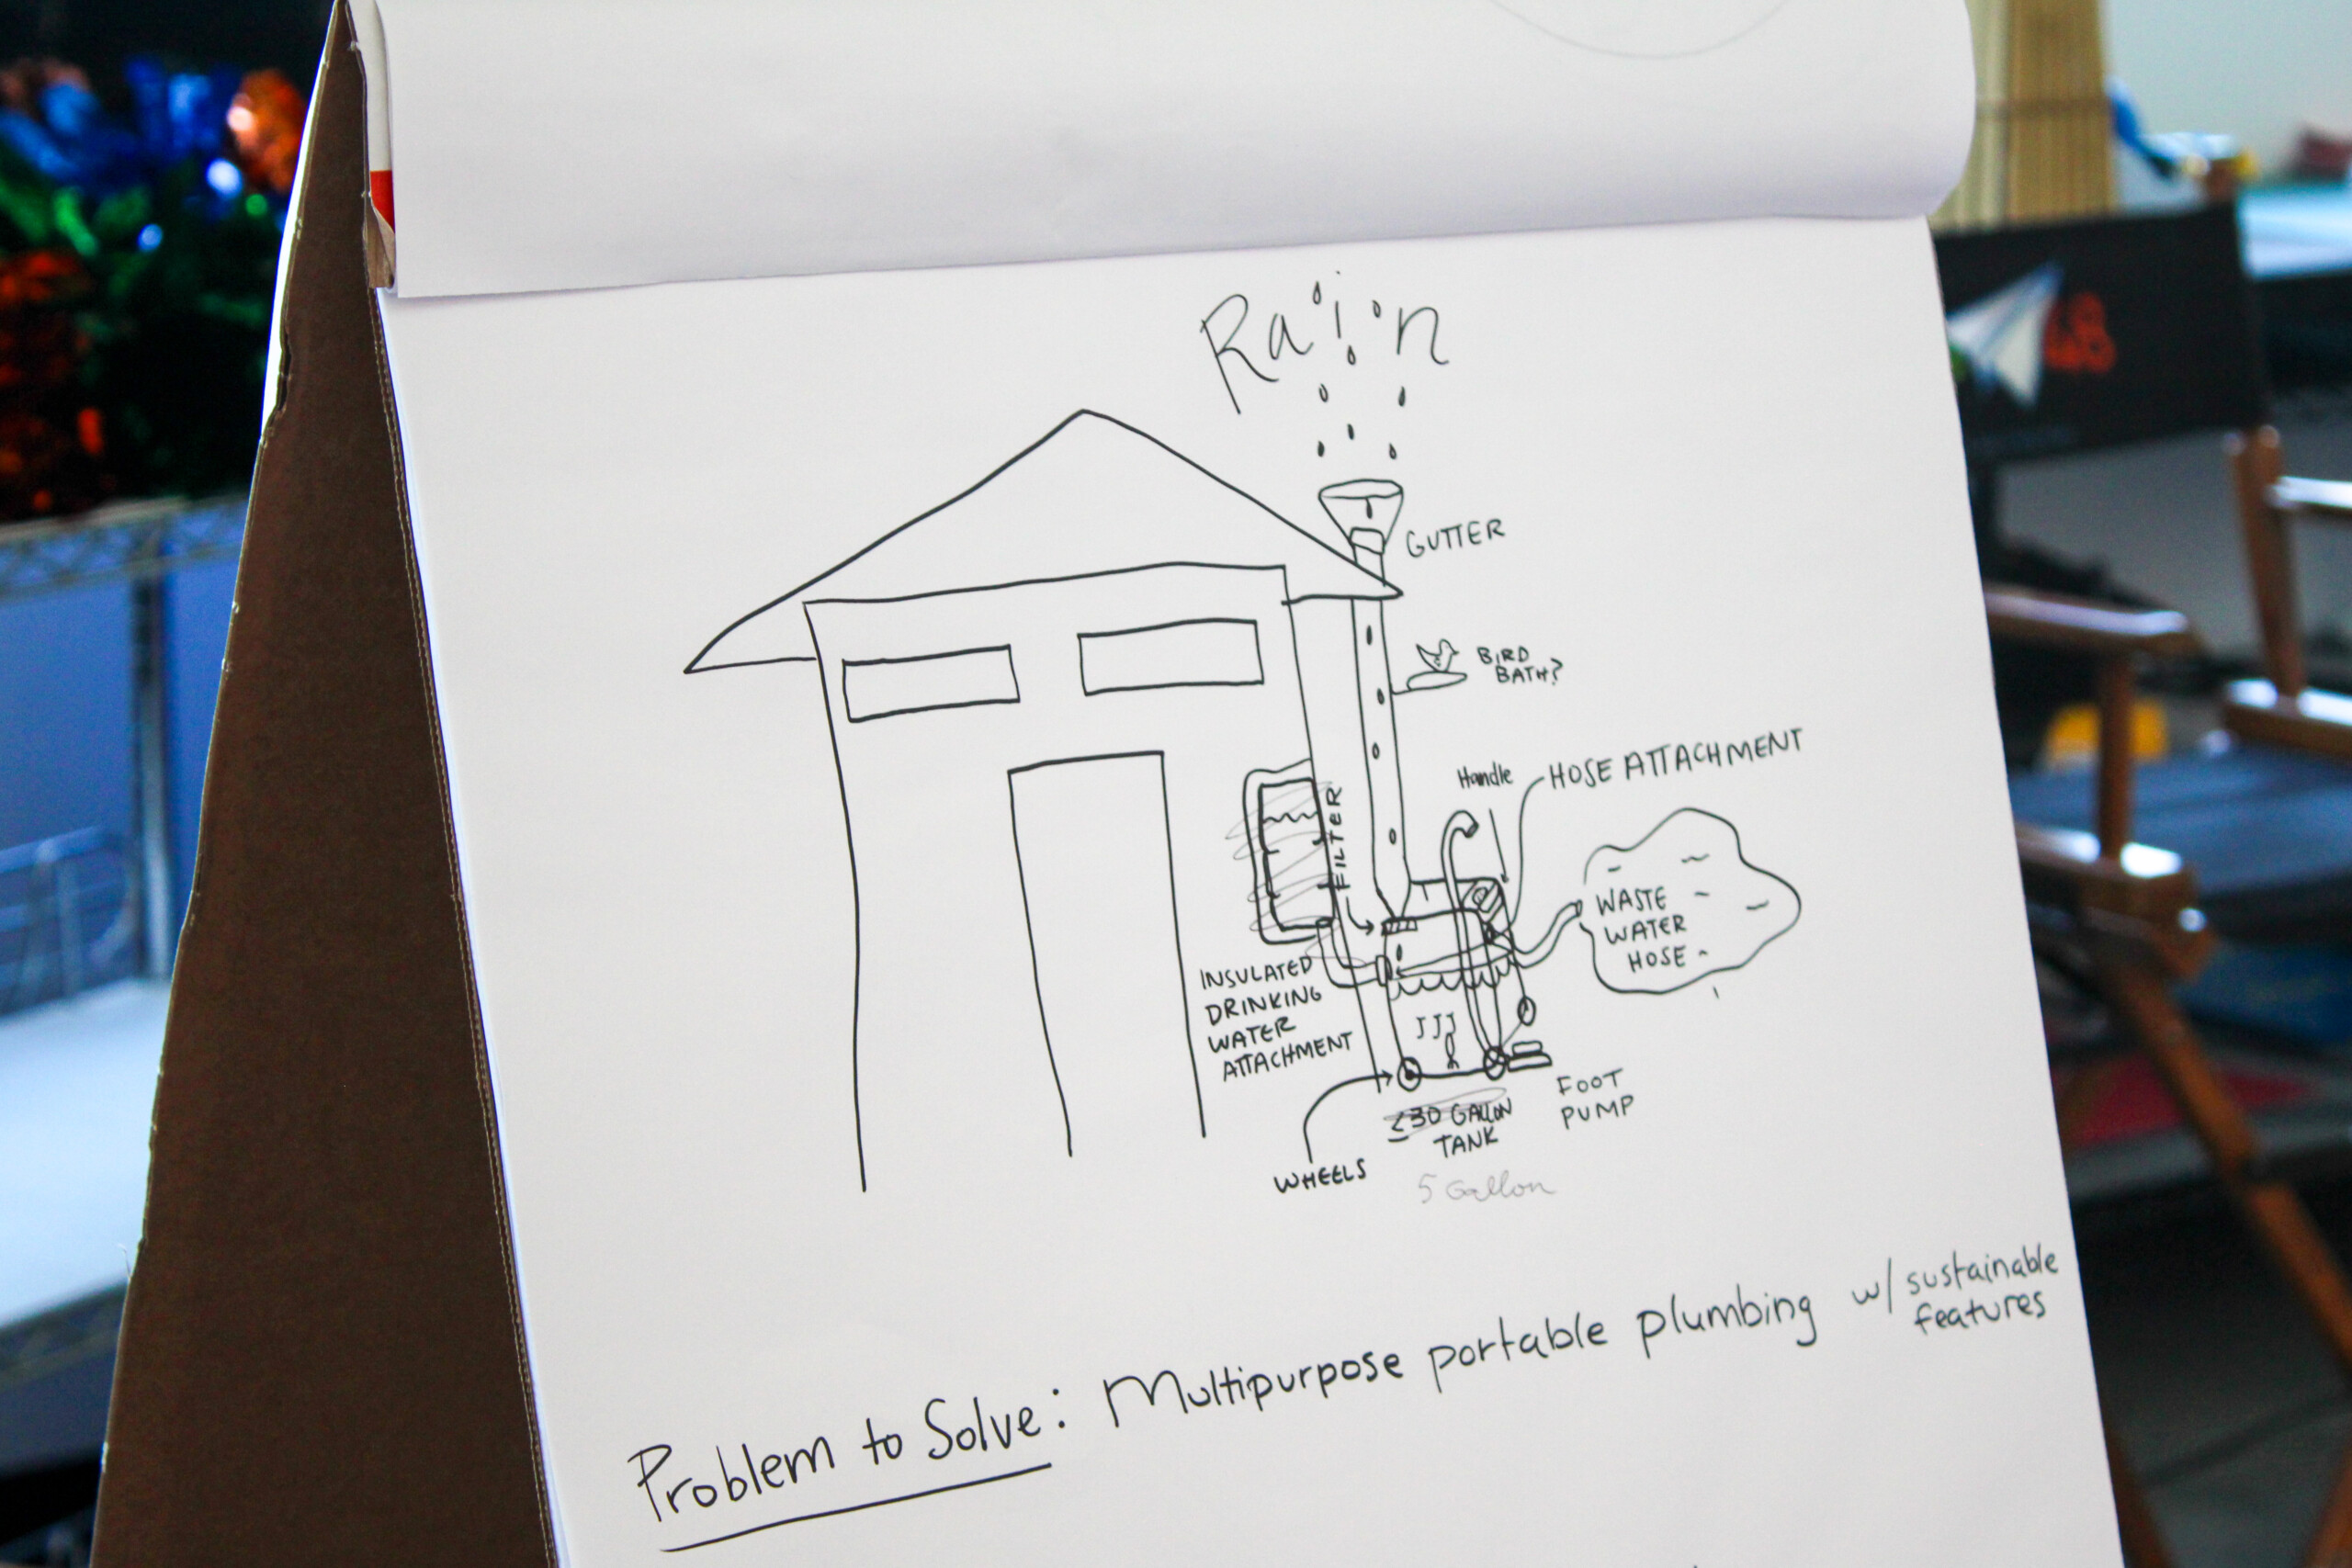 Rain
GUTTER
BIRD
BATH?
Handle
HOSE ATTACHMENT
FILTER
WASTE
WATER
HOSE
INSULATED
DRINKING
WATER
ATTACHMENT
FOOT
PUMP
≤30 GALLON
TANK
WHEELS
5 Gallon
Problem to Solve: Multipurpose portable plumbing w/ sustainable
features